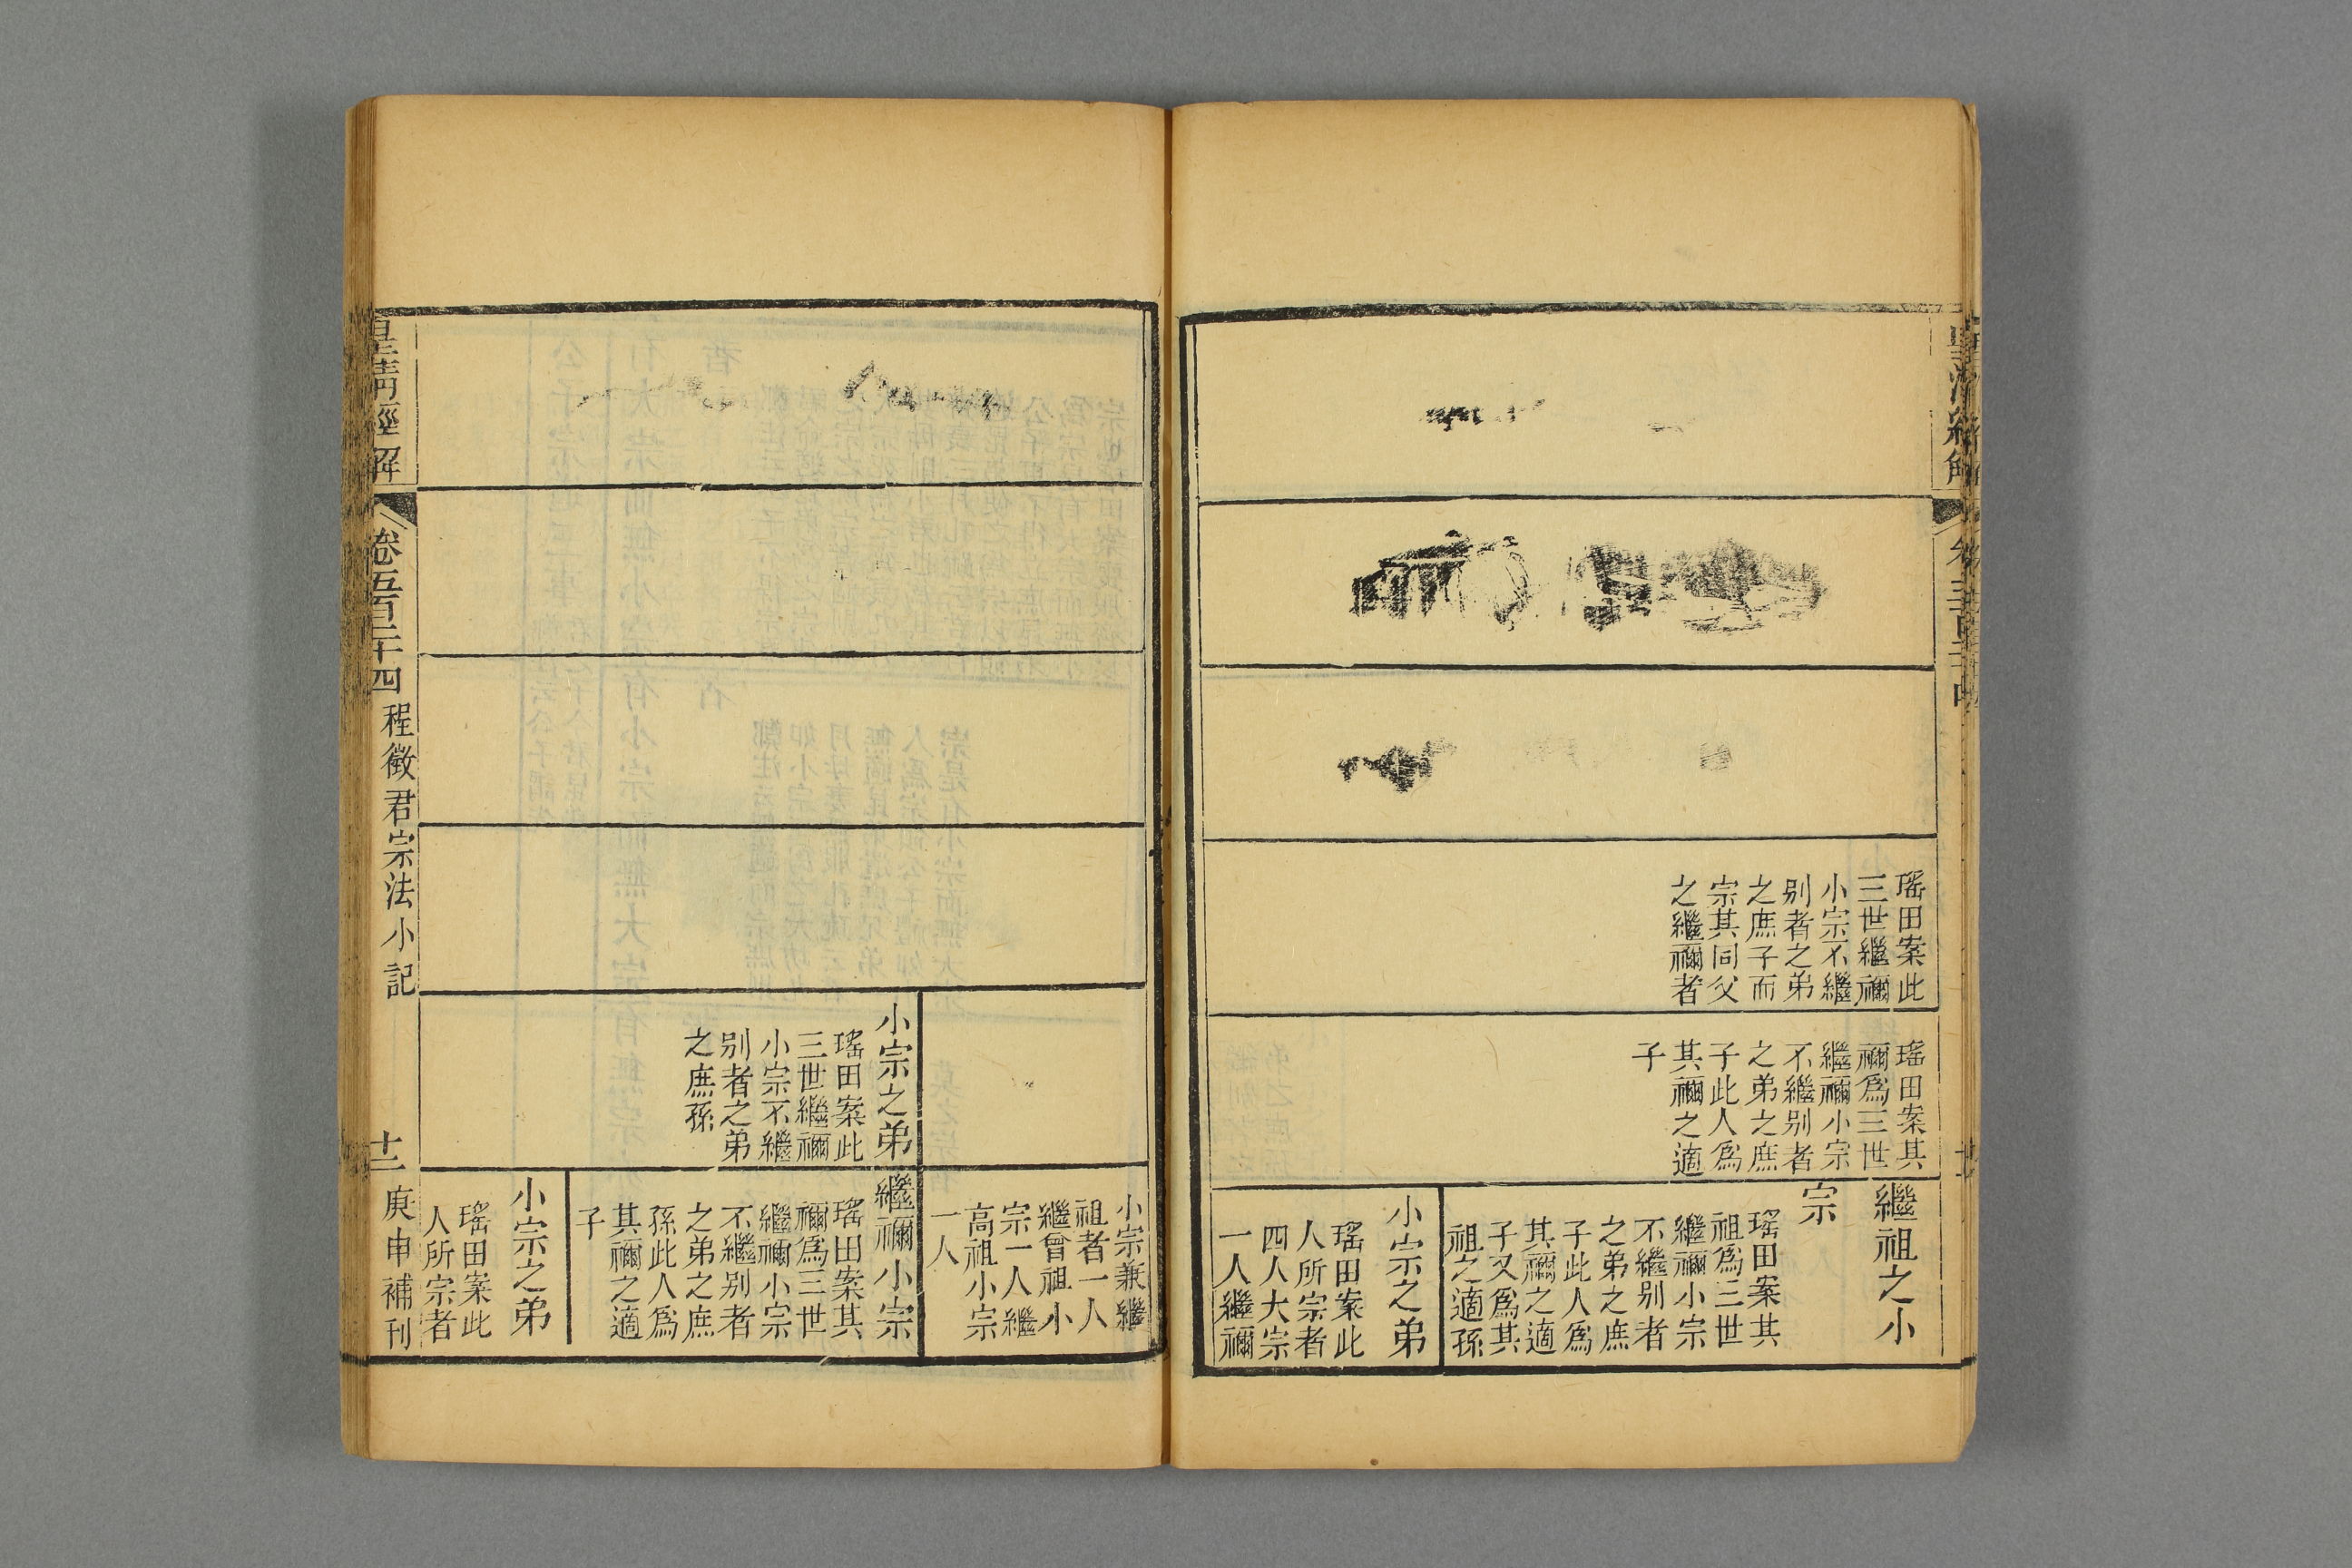 瑤田案此
三世繼禰
小宗不繼
別者之弟
之庶子而
宗其同父
之繼禰者
瑤田案其
禰爲三世
繼禰小宗
不繼別者
之弟之庶
子此人爲
其禰之適
子
繼祖之小
宗
瑤田案其
祖爲三世
繼禰小宗
不繼別者
之弟之庶
子此人爲
其禰之適
子又爲其
祖之適孫
小宗之弟
瑤田案此
人所宗者
四人大宗
一人繼禰
小宗兼繼
祖者一人
繼曾祖小
宗一人繼
高祖小宗
一人
小宗之弟
瑤田案此
三世繼禰
小宗不繼
別者之弟
之庶孫
繼禰小宗
瑤田案其
禰爲三世
繼禰小宗
不繼別者
之弟之庶
孫此人爲
其禰之適
子
小宗之弟
瑤田案此
人所宗者
皇淸經解
卷五百二十四 程徵君宗法小記
十二 庚申補刊